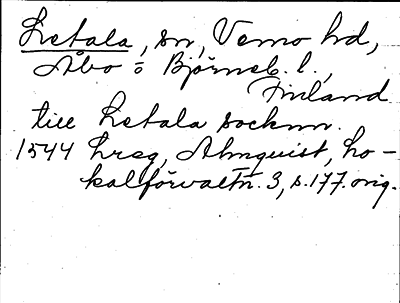 Letala, sn, Vemo hd,
Åbo o Björneb. l.,
Finland
till Letala socknn.
1544 hreg, Almquist, Lo-
kalförvaltn. 3, s. 177. orig.